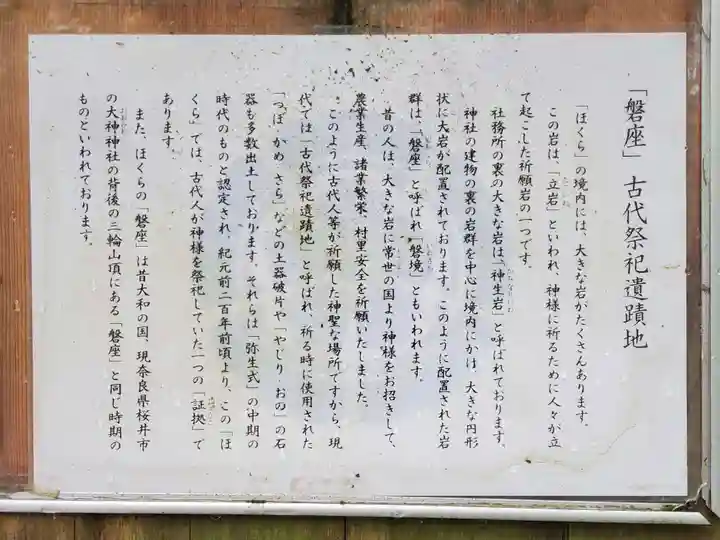 「磐座」古代祭祀遺蹟地
「ほくら」の境内には、大きな岩がたくさんあります。
この岩は、「立岩」といわれ、神様に祈るために人々が立
て起こした祈願岩の一つです。
社務所の裏の大きな岩は「神生岩」と呼ばれております。
神社の建物の裏の岩群を中心に境内にかけ、大きな円形
状に大岩が配置されております。このように配置された岩
群は、「磐座」と呼ばれ、「磐境」ともいわれます。
昔の人は、大きな岩に常世の国より神様をお招きして、
農業生産、諸業繁栄、村里安全を祈願いたしました。
このように古代人等が祈願した神聖な場所ですから、現
代では「古代祭祀遺蹟地」と呼ばれ、祈る時に使用された
「つぼ・かめ・さら」などの土器破片や「やじり・おの」の石
器も多数出土しております。それらは「弥生式」の中期の
時代のものと認定され、紀元前二百年前頃より、この「ほ
くら」では、古代人が神様を祭祀していた一つの「証拠」で
あります。
また、ほくらの「磐座」は昔大和の国、現奈良県桜井市
の大神神社の背後の三輪山頂にある「磐座」と同じ時期の
ものといわれております。